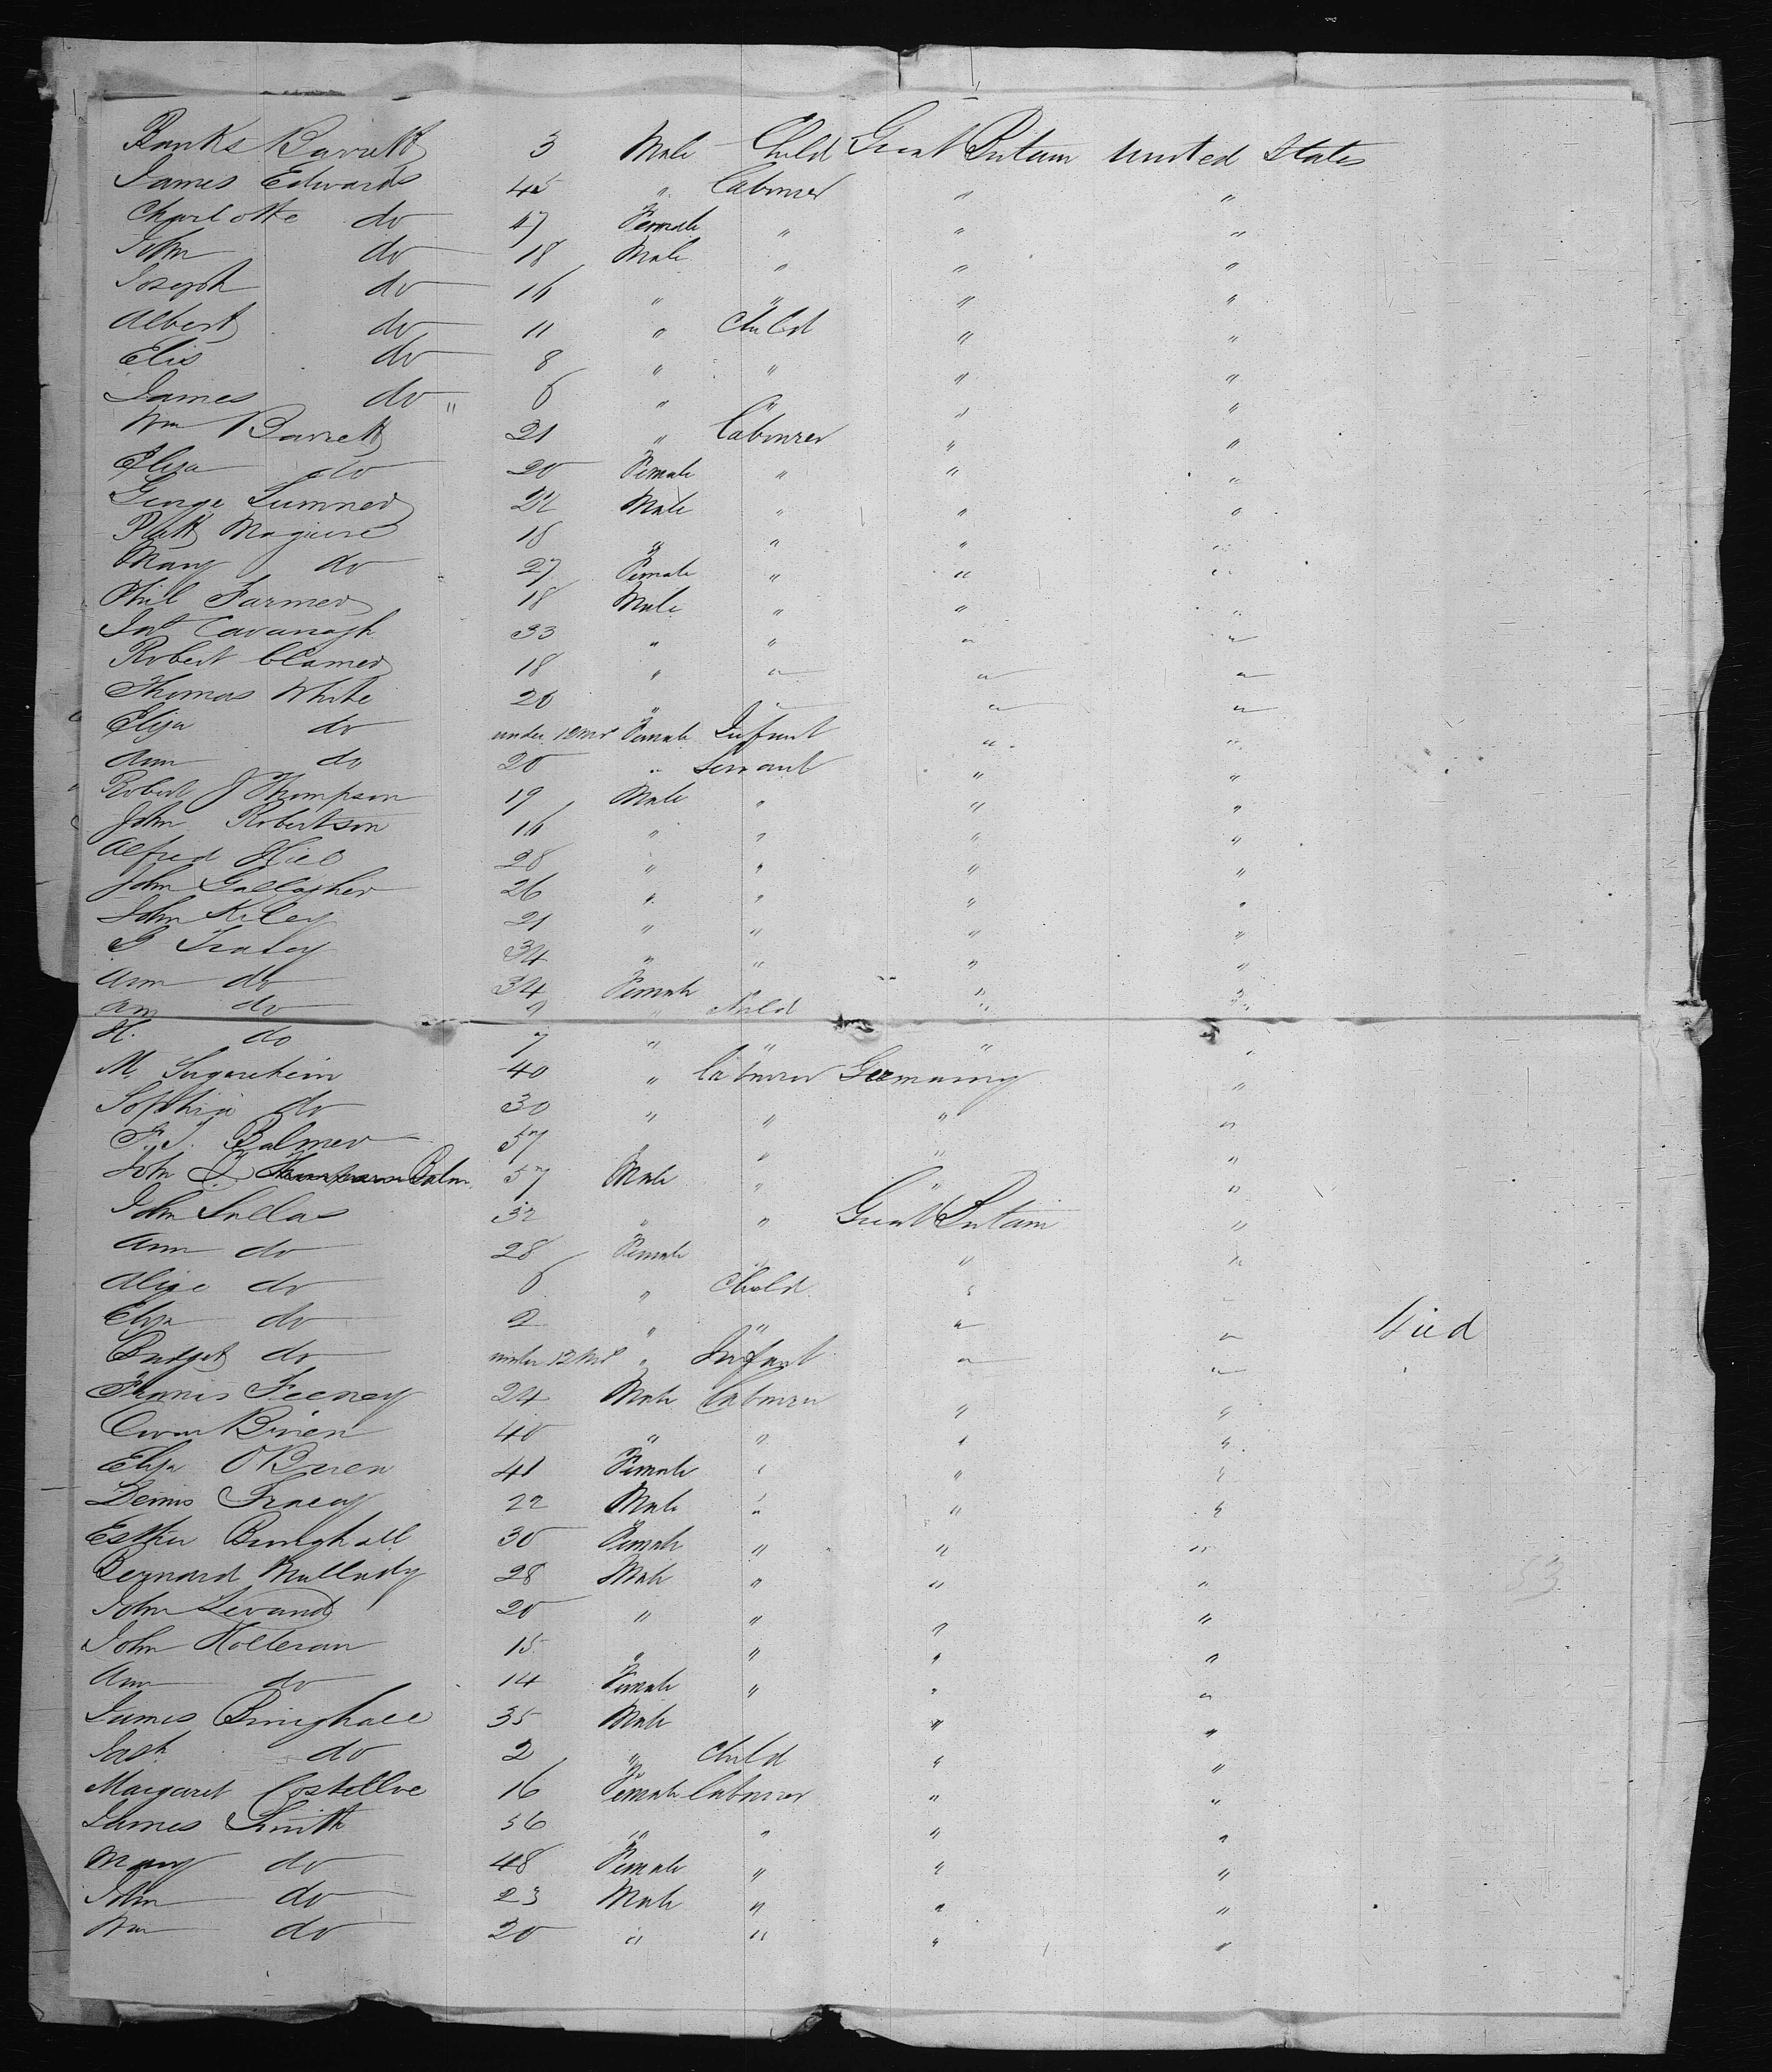 Banks Barrett 3 Male Child Great Britain United States
James Edwards 45 " Labourer " "
Charlotte do 47 Female " " "
John do 18 Male " " "
Joseph do 16 " " " "
Albert do 11 " Child " "
Elis do 8 " " " "
James do " 6 " " " "
Wm Barrett 21 " Labourer " "
Eliza do 20 Female " " "
George Sumner 22 Male " " "
Patt Maguire 18 " " " "
Mary do 27 Female " " "
Phil Farmer 18 Male " " "
Cavanagh 33 " " " "
Robert Clamer 18 " " " "
Thomas White 20 " " " "
Eliza do under 12 mos Female Infant " "
Ann do 20 " Servant " "
Robert J Thompson 19 Male " " "
John Robertson 16 " " " "
Alfred Hill 28 " " " "
John Gallagher 26 " " " "
John Kiley 21 " " " "
J Tracey 34 " " " "
Ann do 34 Female " "
Ann do 9 " Child " "
H. do 7 " " " "
M. 40 " Labourer Germany "
Sophia do 30 " " " "
F. J. Balmer 57 " " "
John J. Balm 57 Male " " "
John Sullas 32 " " Great Britain "
Ann do 28 Female " " "
Alice do 6 " Child " "
Eliza do 2 " " " " Died
Bridget do under 12 mos " Infant " "
Francis Feeney 24 Male Labourer " "
Owen Brien 40 " " " "
Eliza O Brien 41 Female " " "
Dennis Tracey 22 Male " " "
Esther Bringhall 30 Female " " "
Bernard Mullady 28 Male " " "
John Levand 20 " " " "
John Holleran 15 " " " "
Ann do 14 Female " " "
James Bringhall 35 Male " "
Josh do 2 " Child " "
Margaret Costelloe 16 Female Labourer " "
James Smith 56 " " " "
Mary do 48 Female " " "
John do 23 Male " " "
Wm do 20 " " " "
53